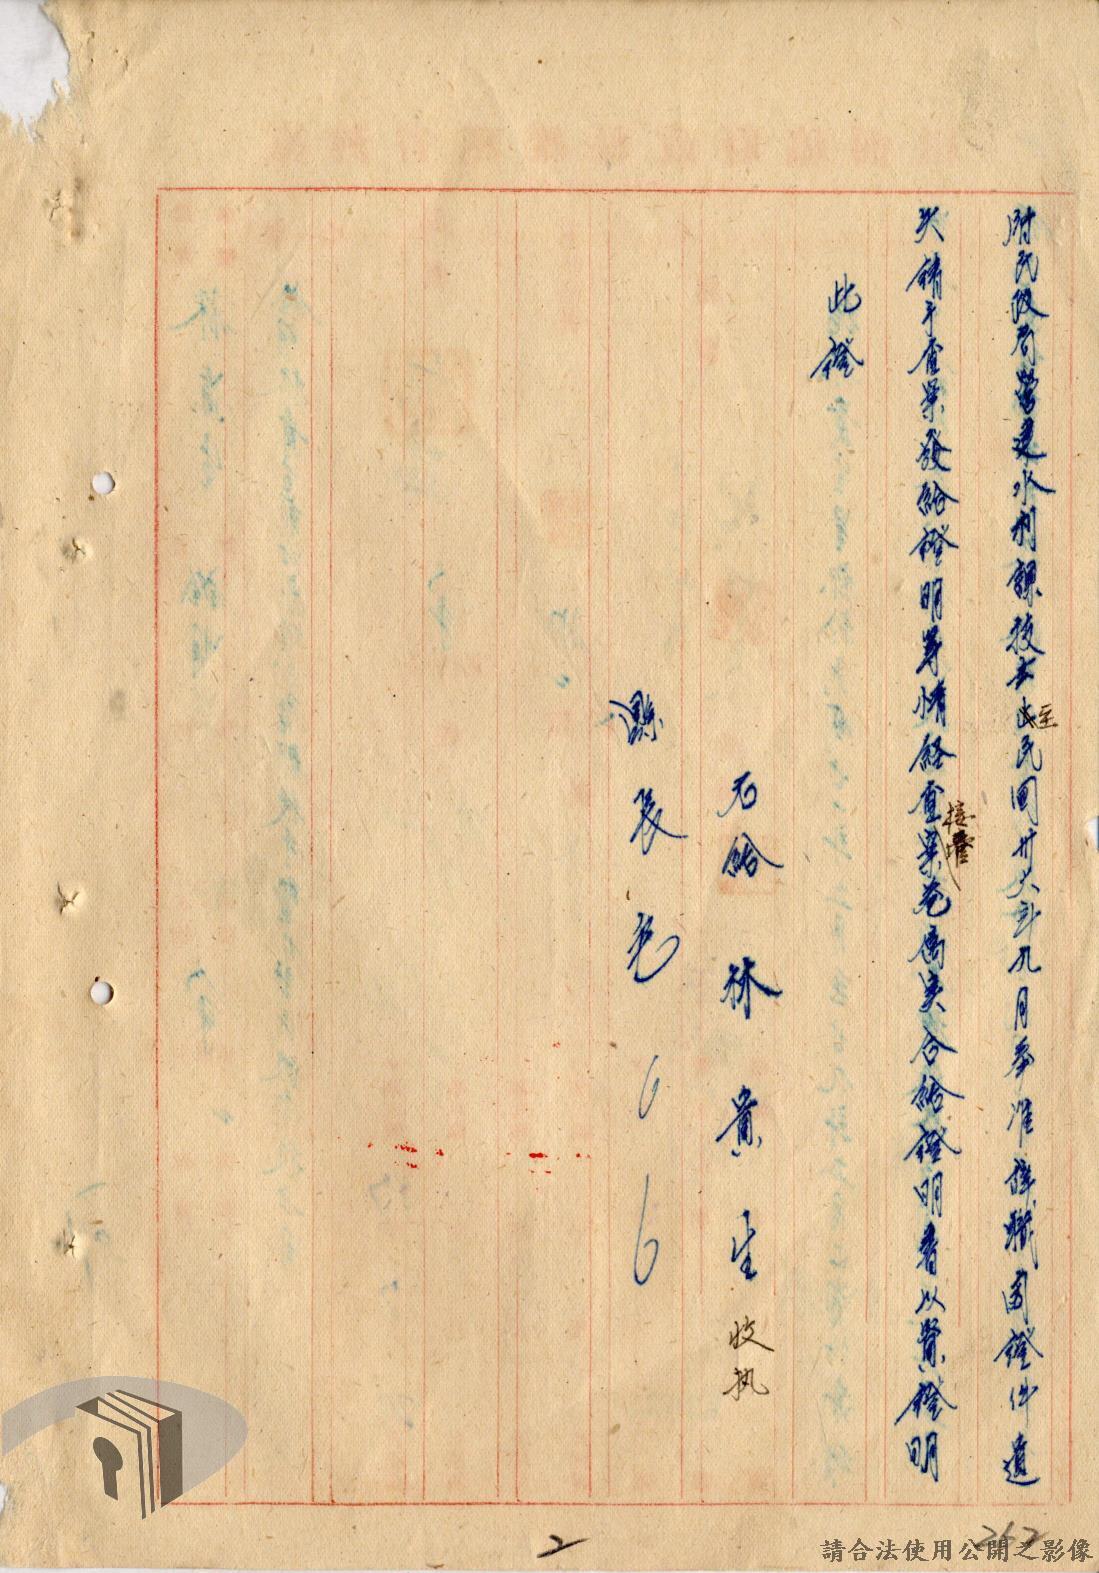 府民政局營建水利課技士至民國卅六年九月奉准辞職因證件遺
失請予查案發給證明等情經查接管案卷屬实合給證明書以資證明
此證
右給 林貴生 收执
縣長 〇 〇 〇
2
262
請合法使用公開之影像